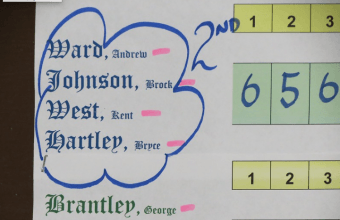 2ND
1 2 3
Ward, Andrew
Johnson, Brock
West, Kent
Hartley, Bryce
6 5 6
1 2 3
Brantley, George